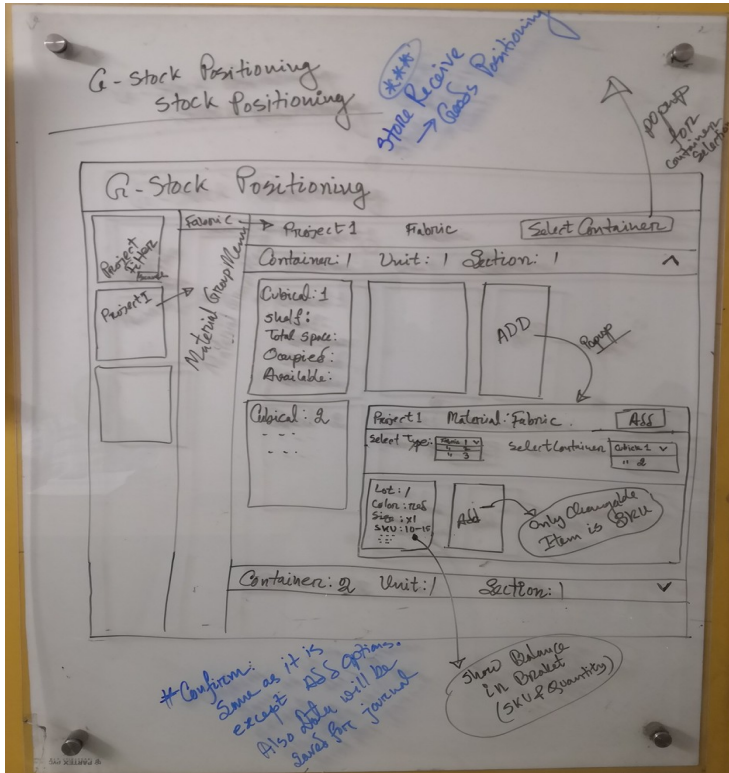 G-Stock Positioning
Stock Positioning
***
Store Receive
→ Goods Positioning
popup
for
container
selection
G-Stock Positioning
Project
Filter
Project 1
Material Group Menu
Fabric → Project 1 Fabric Select Container
Container: 1 Unit: 1 Section: 1
Cubical: 1
Shelf:
Total Space:
Occupied:
Available:
ADD
Popup
Cubical: 2
Project 1 Material: Fabric. Add
Select Type: Fabric 1
" 2
" 3
Select Container Cubicle 1
" 2
Lot: 1
Color: red
Size: xl
SKU: 10-15
Add
Only Changable
Item is SKU
Container: 2 Unit: 1 Section: 1
# Confirm:
Same as it is
except Add options.
Also Data will be
saved for journal
Show Balance
in Braket
(SKU & Quantity)